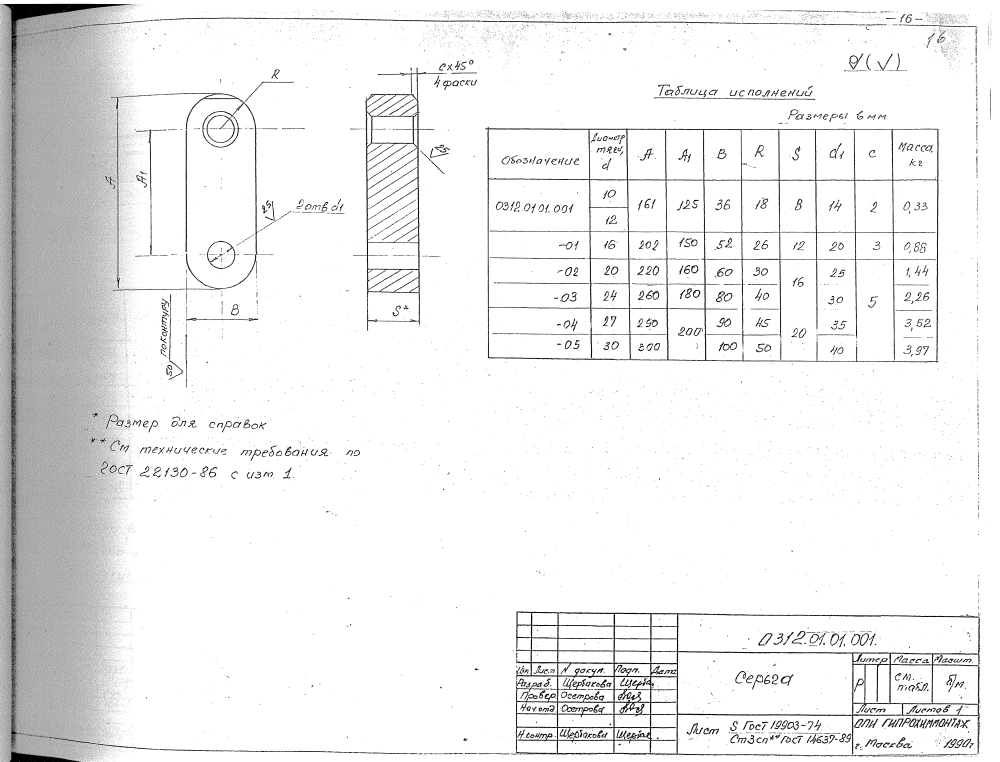 -16-
16
√(√)
Таблица исполнений
Размеры в мм
Обозначение Диаметр тяги, d А А1 В R S d1 c Масса, кг
0312.01.01.001 10 12 161 125 36 18 8 14 2 0,33
-01 16 202 150 52 26 12 20 3 0,86
-02 20 220 160 60 30 16 25 5 1,44
-03 24 260 180 80 40 30 2,26
-04 27 290 200 90 45 20 35 3,52
-05 30 300 100 50 40 3,97
R
c×45°
4 фаски
25
А
А1
2 отв d1
25
В
S*
50
по контуру
* Размер для справок
** См технические требования по
ГОСТ 22130-86 с изм 1.
0312.01.01.001.
Изм Лист N докум. Подп. Дата
Разраб. Щербакова
Провер Осетрова
Нач отд Осетрова
Н.контр. Щербакова
Серьга
Литер Масса Масшт.
Р см. табл. б/м
Лист Листов 1
Лист S ГОСТ 19903-74
Ст3сп** ГОСТ 14637-89
ГИПРОХИММОНТАЖ
г. Москва 1990г